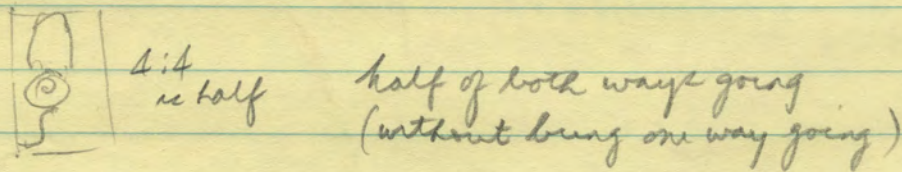 4:4
is half
half of both ways going
(without being one way going)